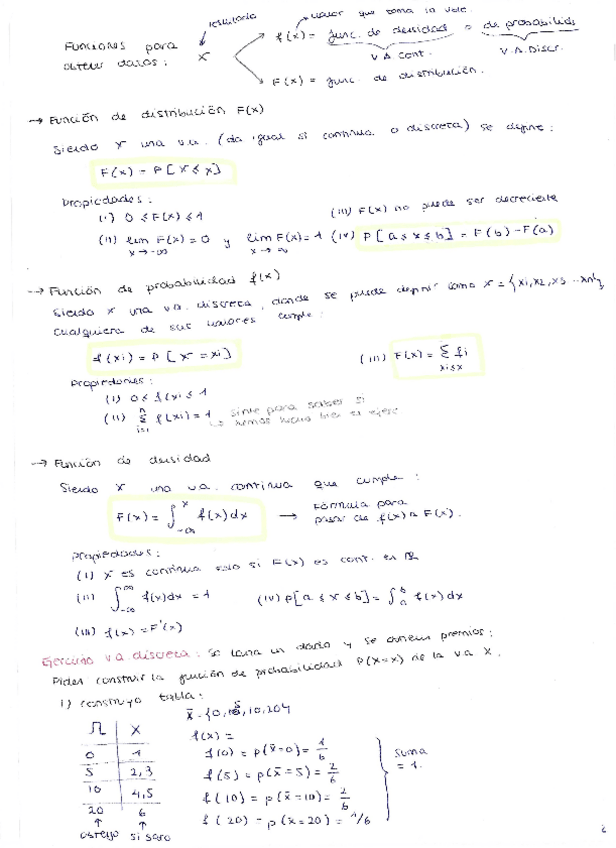 resultado → valor que toma la v.a.
Funciones para obtener datos: X
f(x) = func. de densidad o de probabilidad
V.A. Cont. V.A. Discr.
F(x) = func. de distribución.
→ Función de distribución F(x)
Siendo X una v.a. (da igual si continua o discreta) se define:
F(x) = P[X ≤ x]
Propiedades:
(i) 0 ≤ F(x) ≤ 1 (iii) F(x) no puede ser decreciente
(ii) lim F(x) = 0 y lim F(x) = 1 (iv) P[a ≤ x ≤ b] = F(b) - F(a)
x → -∞ x → ∞
→ Función de probabilidad f(x)
Siendo X una v.a. discreta, donde se puede definir como X = {x1, x2, x3 ... xn},
cualquiera de sus valores cumple:
f(xi) = P[X = xi] (iii) F(x) = Σ fi
xi≤x
Propiedades:
(i) 0 ≤ f(xi) ≤ 1
(ii) Σ f(xi) = 1 → sirve para saber si
n i=1 hemos hecho bien el ejerc
→ Función de densidad
Siendo X una v.a. continua que cumple:
F(x) = ∫ -∞ x f(x)dx → Fórmula para
pasar de f(x) a F(x).
Propiedades:
(i) X es continua solo si F(x) es cont. en ℝ
(ii) ∫ -∞ ∞ f(x)dx = 1 (iv) P[a ≤ x ≤ b] = ∫ a b f(x)dx
(iii) f(x) = F'(x)
Ejercicio v.a. discreta: se lanza un dado y se obtienen premios:
Piden construir la función de probabilidad P(X=x) de la v.a X.
1) construyo tabla:
Ω X
0 1
5 2,3
10 4,5
20 6
↑ ↑
obtengo si saco
f(x) =
f(0) = p(x=0) = 1/6
f(5) = p(x=5) = 2/6
f(10) = p(x=10) = 2/6
f(20) = p(x=20) = 1/6
suma
= 1.